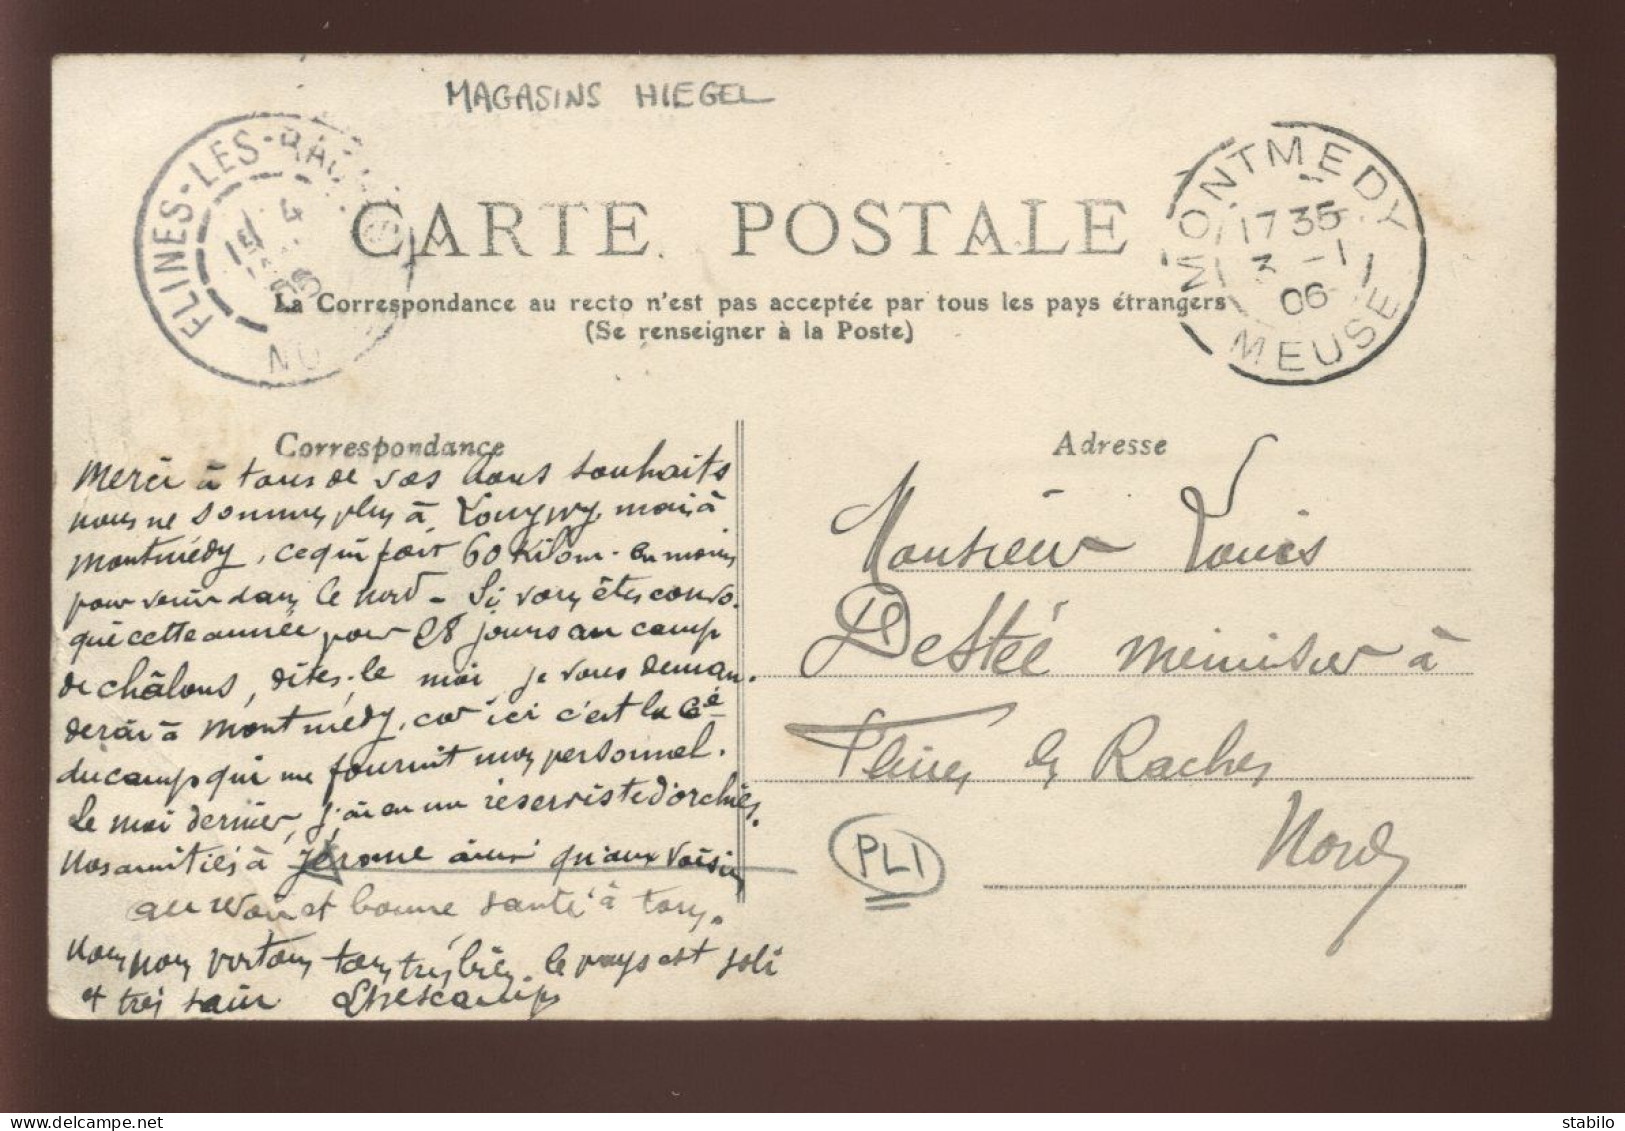 MAGASINS HIEGEL
FLINES-LES-RACHES
4
06
MONTMEDY
17 35
3 - 1
06
MEUSE
CARTE POSTALE
La Correspondance au recto n'est pas acceptée par tous les pays étrangers
(Se renseigner à la Poste)
Correspondance
Adresse
Merci à tous de vos bons souhaits
nous ne sommes plus à Longwy, mais à
Montmédy, ce qui fait 60 Kilom. en moins
pour venir dans le nord - Si vous êtes convo-
qué cette année pour 28 jours au camp
de châlons, dites-le moi, je vous deman-
derai à Montmédy, car ici c'est la Cie
du camp qui me fournit mon personnel.
Le moi dernier, j'ai eu un réserviste d'orchies.
Nos amitiés à Jérome ainsi qu'aux voisins
au revoir et bonne santé à tous.
Nous nous portons tous très bien. le pays est joli
et très sain
Monsieur Louis
Desteé menuisier à
Flines les Raches
Nord
PLI
stabylo